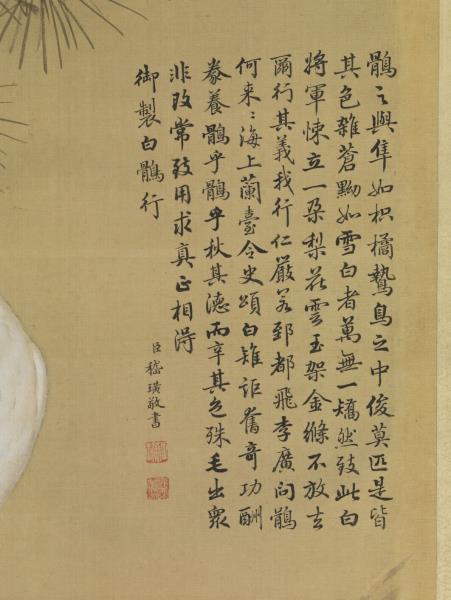 鶻之與隼如枳橘鷙鳥之中俊莫匹是皆
其色雜蒼黝如雪白者萬無一矯然致此白
將軍悚立一朶梨花雲玉架金絛不放去
爾行其義我行仁嚴若郅都飛李廣問鶻
何來〻海上蘭臺令史頌白雉詎舊奇功酬
豢養鶻乎鶻乎秋其德而辛其色殊毛出衆
非改常致用求真正相淂
御製白鶻行
臣嵇璜敬書